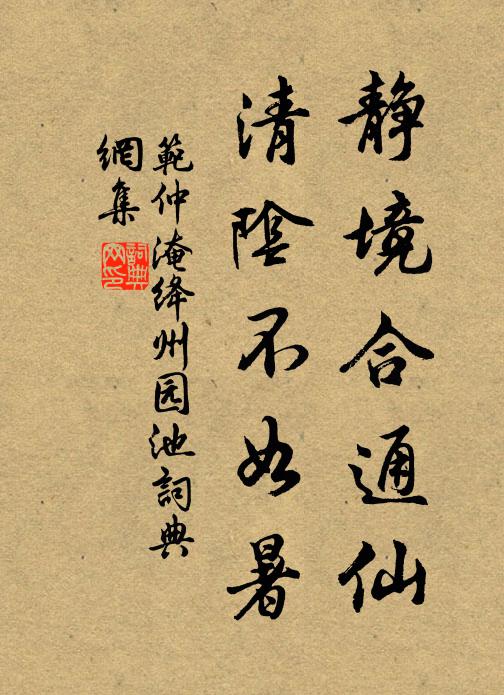 静境合通仙
清陰不知暑
範仲淹絳州园池詞典
網集
詞典网印